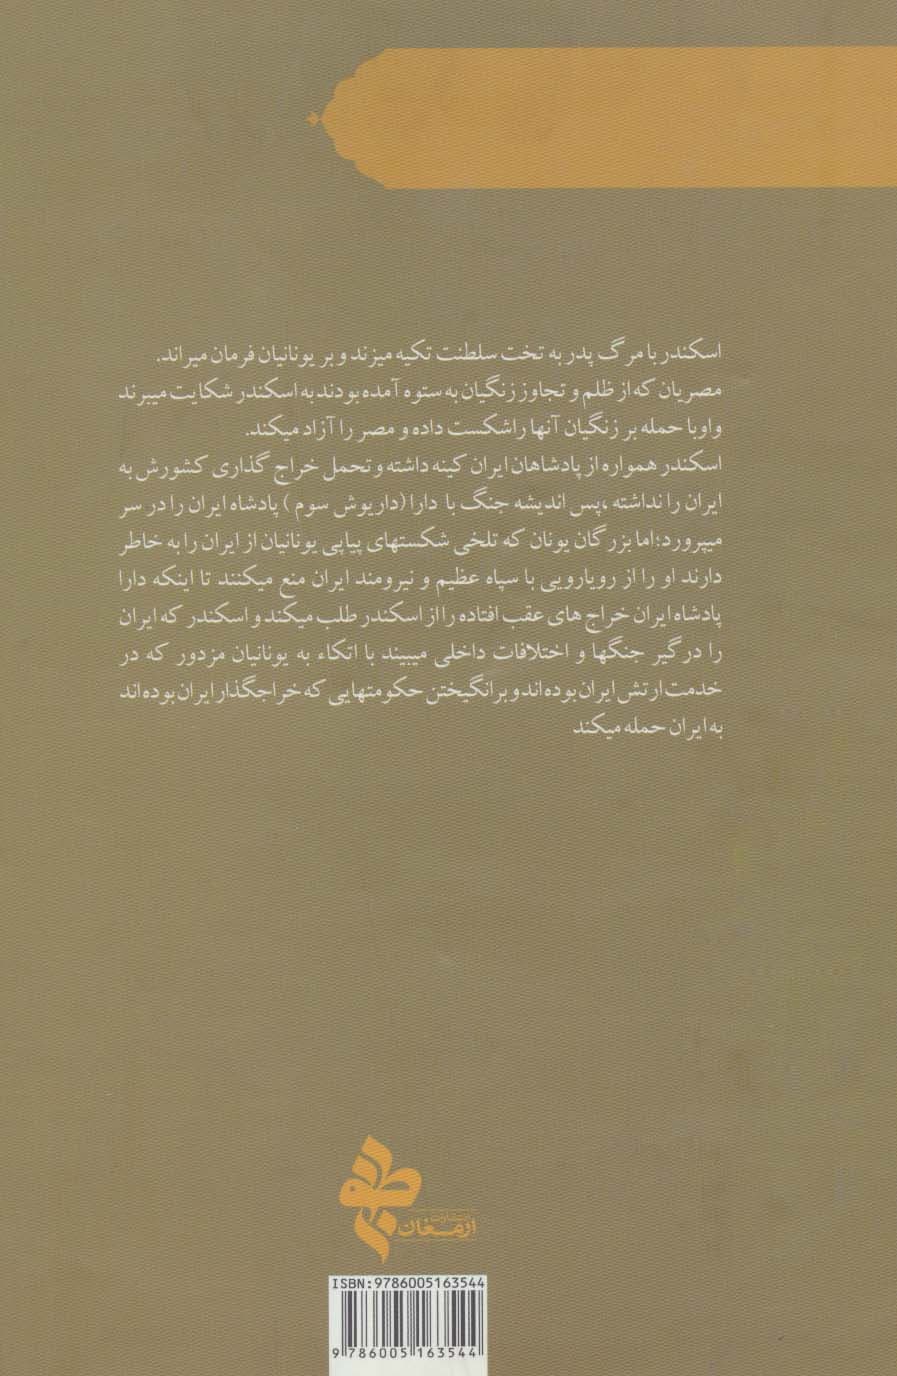 اسکندر با مرگ پدر به تخت سلطنت تکیه میزند و بر یونانیان فرمان میراند.
مصریان که از ظلم و تجاوز زنگیان به ستوه آمده بودند به اسکندر شکایت میبرند
و او با حمله بر زنگیان آنها را شکست داده و مصر را آزاد میکند.
اسکندر همواره از پادشاهان ایران کینه داشته و تحمل خراج گذاری کشورش به
ایران را نداشته ،پس اندیشه جنگ با دارا (داریوش سوم ) پادشاه ایران را در سر
میپرورد؛اما بزرگان یونان که تلخی شکستهای پیاپی یونانیان از ایران را به خاطر
دارند او را از رویارویی با سپاه عظیم و نیرومند ایران منع میکنند تا اینکه دارا
پادشاه ایران خراج های عقب افتاده را از اسکندر طلب میکند و اسکندر که ایران
را درگیر جنگها و اختلافات داخلی میبیند با اتکاء به یونانیان مزدور که در
خدمت ارتش ایران بوده اند و برانگیختن حکومتهایی که خراجگذار ایران بوده اند
به ایران حمله میکند
انتشارات
ارمغان
ISBN:9786005163544
9 786005 163544